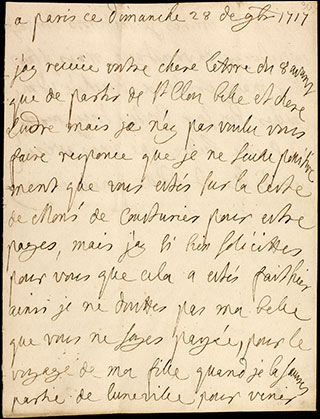 a paris ce dimanche 28 de 9br 1717
jay receue vostre chere lettre du 8 avang
que de partir de St Clou belle et chere
Ludre mais je n'ey pas voulu vous
faire responce que je ne seude positive
ment que vous estiés sur la liste
de Mons de Couturies pour estre
payee, mais jay si bien solicittes
pour vous que cela a estés fait hier
ainsi je ne douttes pas ma belle
que vous ne soyes payée, pour le
voyage de ma fille quand je la
partie de luneville pour venir